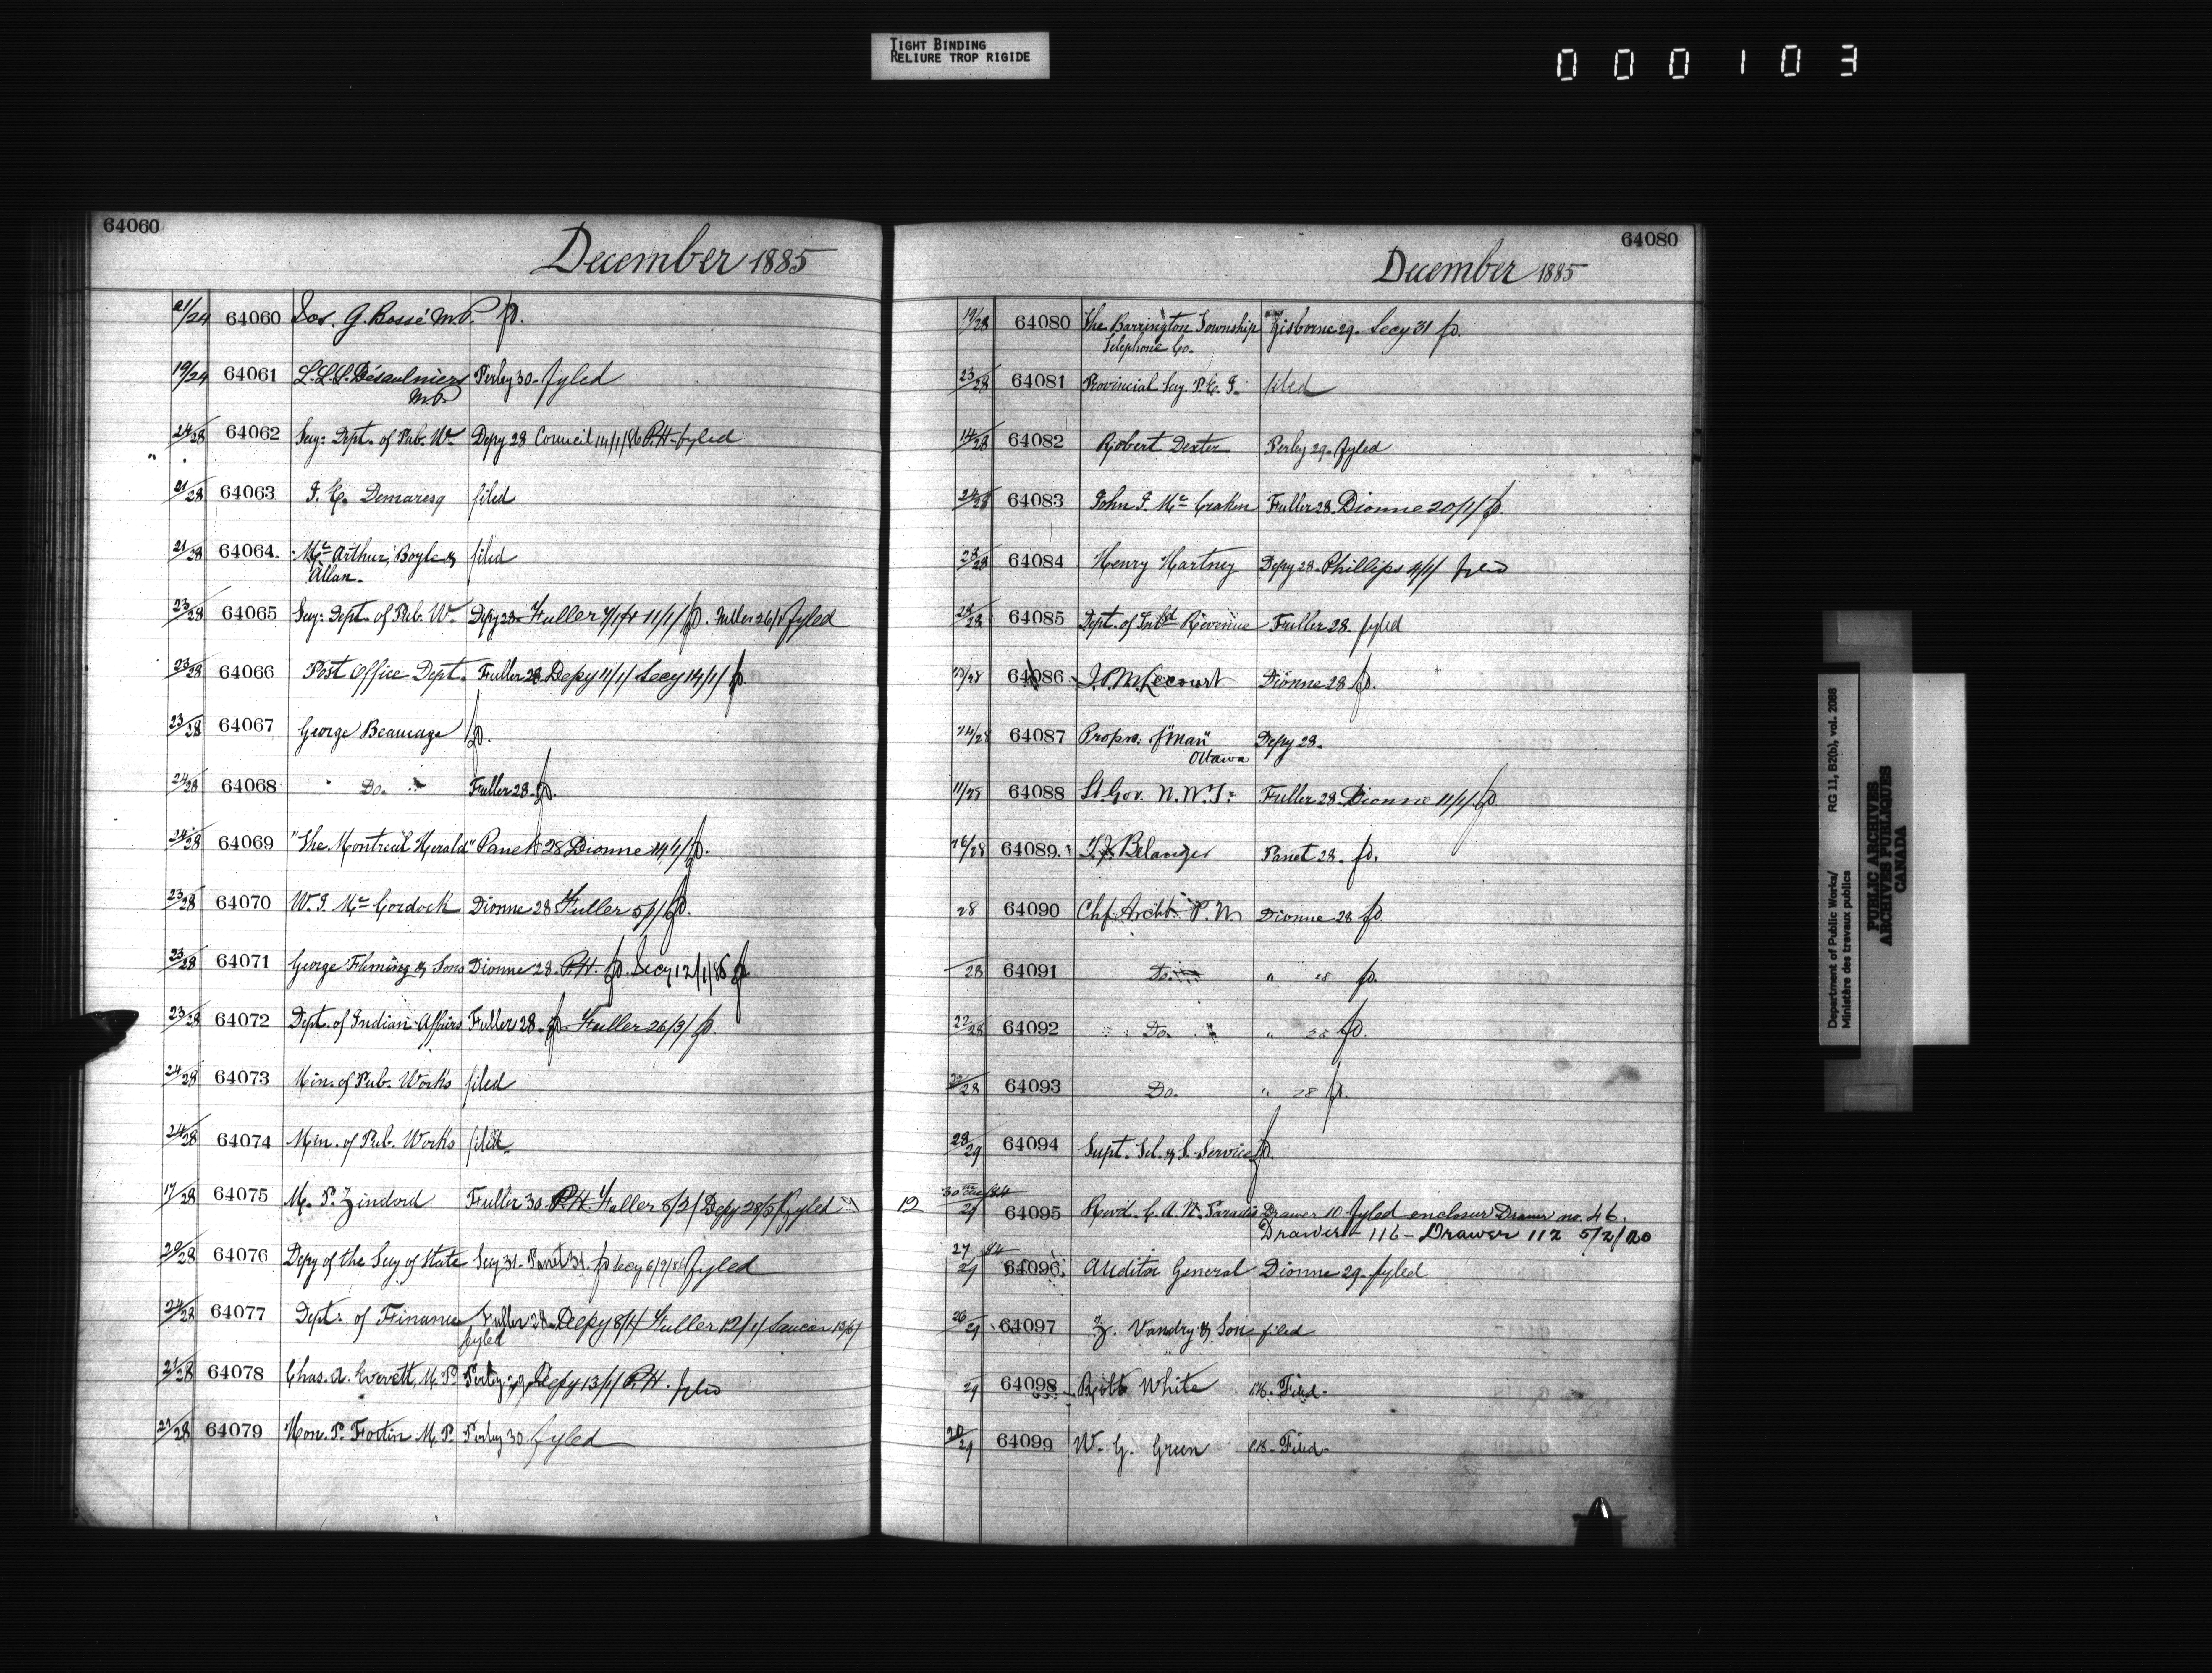 TIGHT BINDING
RELIURE TROP RIGIDE
000103
64060
December 1885
21/24 64060 Jos. G. Bossé M.P. fd.
19/24 64061 L.L.L. Désaulniers Perley 30. fyled
M.P.
24/28 64062 Secy: Dept. of Pub. W. Depy 28 Council 14/1/86 P.H. fyled
21/28 64063 J. E. Demaresq filed
21/28 64064. McArthur, Boyle & filed
Allan.
23/28 64065 Secy: Dept. of Pub. W. Depy 28 Fuller 11/1/ fd. Fuller 26/1 fyled
23/28 64066 Post Office Dept. Fuller 28 Depy 11/1/ Secy 14/1/ fd.
23/28 64067 George Beaucage fd.
24/28 64068 " Do. " Fuller 28 fd.
24/28 64069 "The Montreal Herald" Panet 28 Dionne 14/1/ fd.
23/28 64070 W. J. McCordock Dionne 28 Fuller 5/1/ fd.
23/28 64071 George Fleming & Sons Dionne 28. P.H. fd. Secy 12/1/86 fd.
23/28 64072 Dept. of Indian Affairs Fuller 28. fd. Fuller 26/3/ fd.
24/28 64073 Min. of Pub. Works filed
24/28 64074 Min. of Pub. Works filed
17/28 64075 M. P. Fuller 30 P.H. Fuller 8/2/ Depy 28/5/ fyled
64076 Depy of the Secy of State Secy 31. Panet 31. fd Secy fyled
24/28 64077 Dept. of Finance Fuller 28. Depy 8/1/ Fuller 12/1/
fyled
21/28 64078 Chas. A. Everett, M.P. Perley 29, Depy 13/1/ P.H. fyled
21/28 64079 Hon. P. Fortin M.P. Perley 30 fyled
64080
December 1885
19/28 64080 The Barrington Township Gisborne 29. Secy 31 fd.
Telephone Co.
23/28 64081 Provincial Secy. P.E.I. filed
14/28 64082 Robert Dexter Perley 29. fyled
24/28 64083 John J. McCraken Fuller 28. Dionne 20/1/ fd.
28/28 64084 Henry Hartney Depy 28. Phillips 4/1/ fyled
64085 Dept. of Inld Revenue Fuller 28. fyled
64086 J. P. M. Lecourt Dionne 28 fd.
24/28 64087 Propr. of "Man" Depy 28.
Ottawa
64088 Lt. Gov. N.W.T: Fuller 28. Dionne 11/1/ fd.
64089. Belanger Panet 28. fd.
28 64090 Chf. Archt. P.W. Dionne 28 fd.
28 64091 Do. " 28 fd.
22/28 64092 Do. " 28 fd.
64093 Do. " 28 fd.
28/29 64094 Supt. Tel. & S. Service fd.
12 64095 Revd. C. A. M. Paradis Drawer 10 fyled enclosur Drawer no. 46.
Drawer 116 - Drawer 112 5/2/20
64096. Auditor General Dionne 29. fyled
26/29 64097 Z. Vandry & Son filed
29 64098 Robt White P.H. Filed.
64099 W. G. Green P.H. Filed.
Department of Public Works/ RG 11, B2(b), vol. 2088
Ministère des travaux publics
PUBLIC ARCHIVES
ARCHIVES PUBLIQUES
CANADA